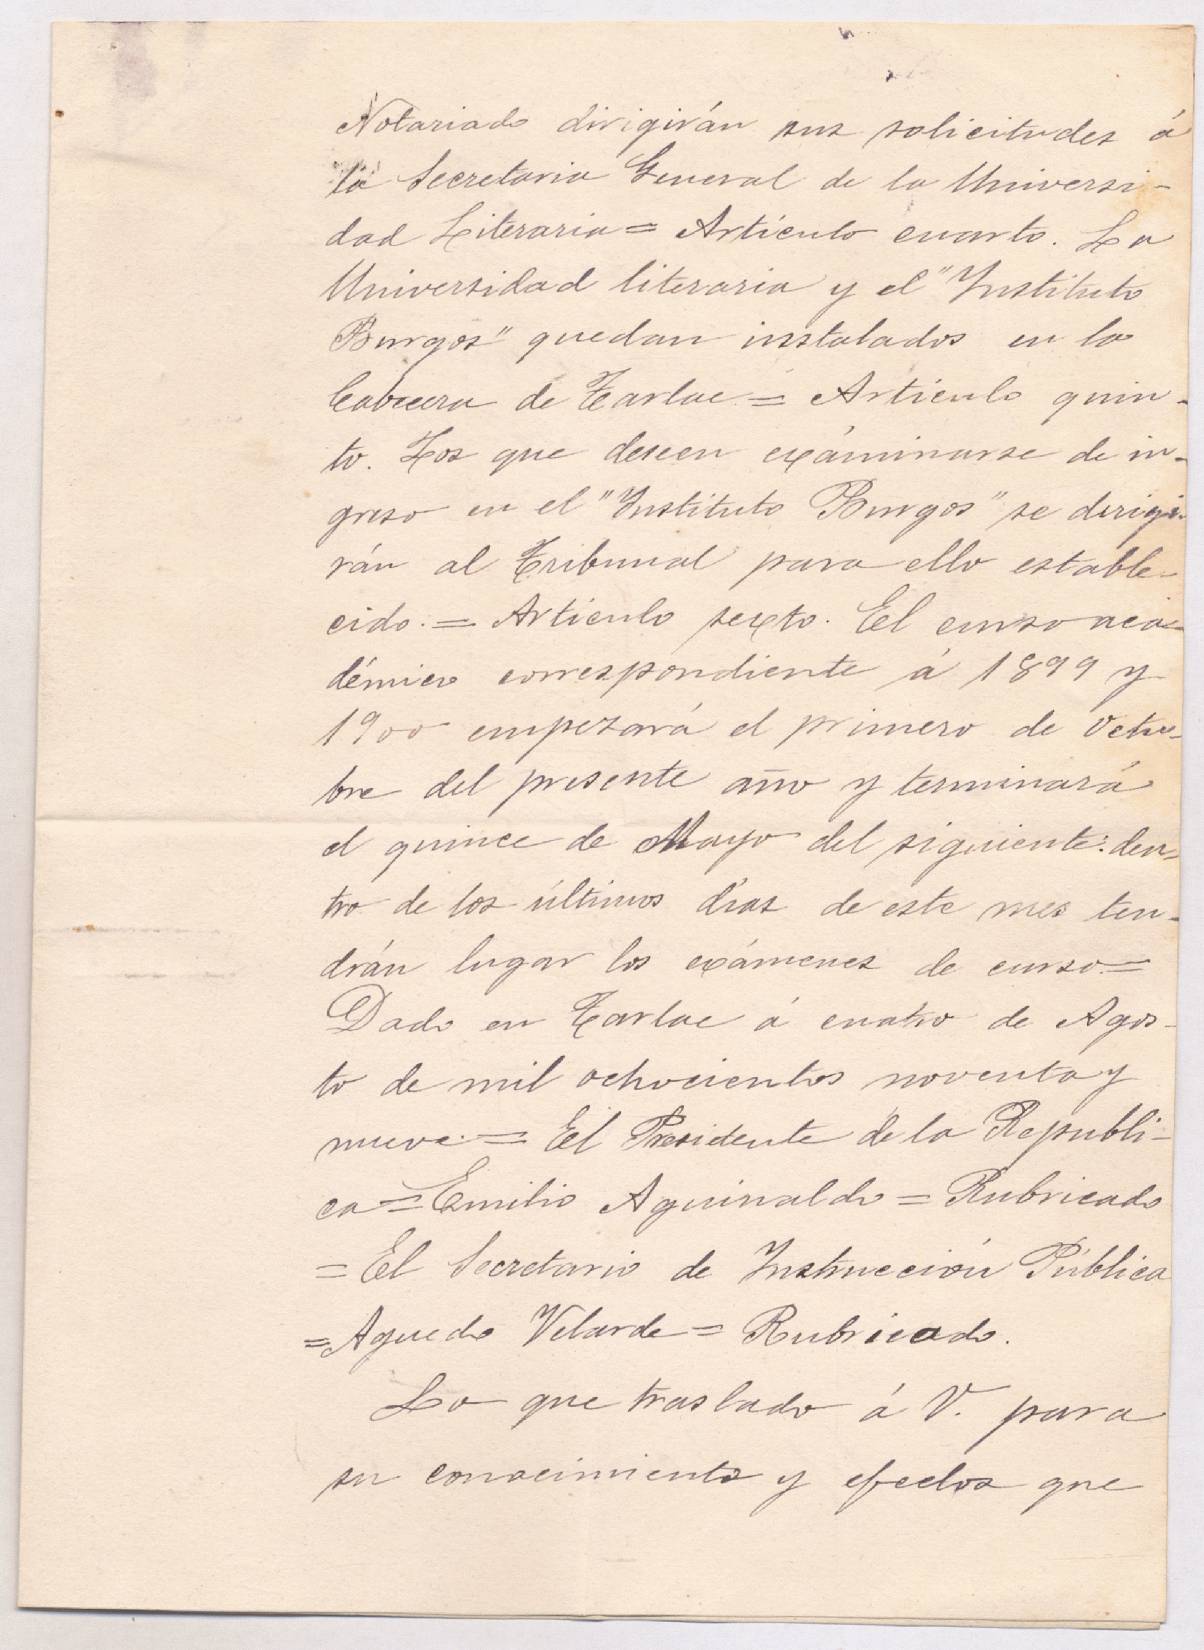 Notariado dirigirán sus solicitudes á
la Secretaria General de la Universi-
dad Literaria = Artículo cuarto. La
Universidad literaria y el "Instituto
Burgos" quedan instalados en la
Cabecera de Tarlac = Artículo quin-
to. Los que deseen exáminarse de in-
greso en el "Instituto Burgos" se dirigi-
rán al Tribunal para ello estable-
cido. = Artículo sexto. El curso aca-
démico correspondiente á 1899 y
1900 empezará el primero de Octu-
bre del presente año y terminará
el quince de Mayo del siguiente: den-
tro de los últimos días de este mes ten-
drán lugar los exámenes de curso =
Dado en Tarlac á cuatro de Agos-
to de mil ochocientos noventa y
nueve. = El Presidente de la Republi-
ca = Emilio Aguinaldo = Rubricado
= El Secretario de Instrucción Pública
= Aguedo Velarde = Rubricado.
Lo que traslado á V. para
su conocimiento y efectos que